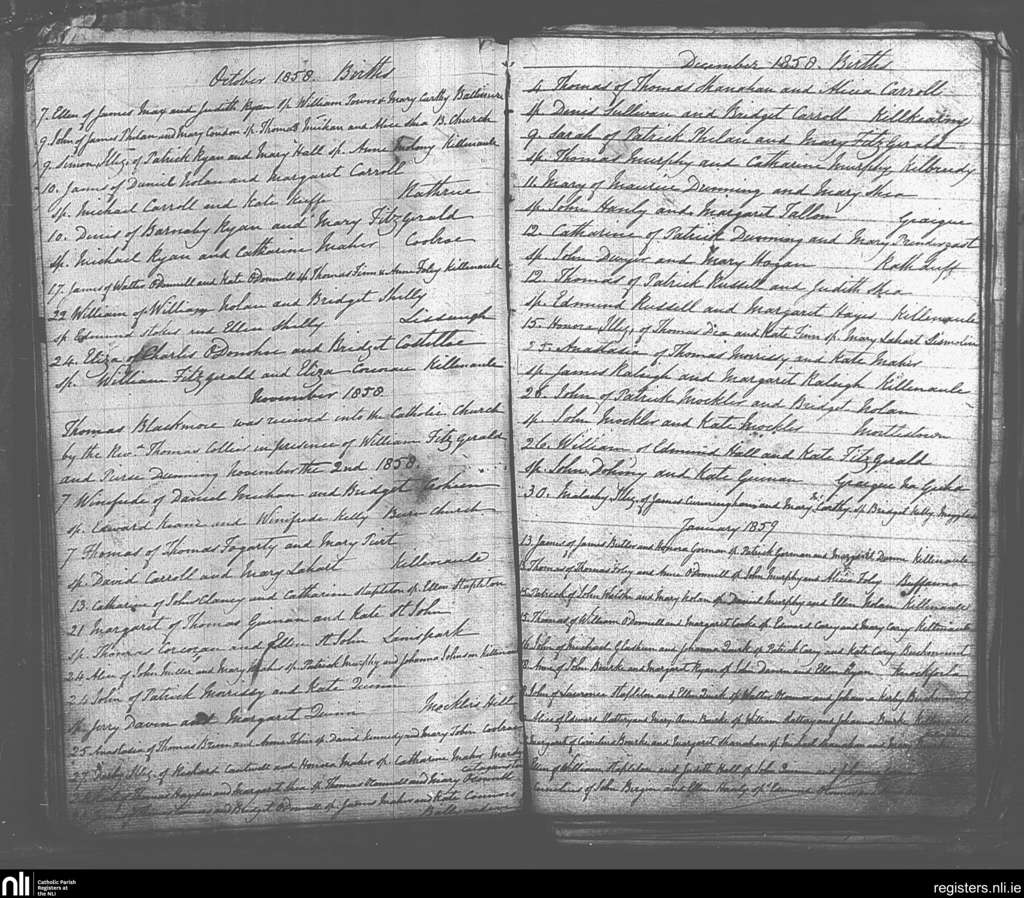 October 1858 Births
7. Ellen of James Max and Judith Ryan Sp. William Power & Mary Carthy Ballinure
9. John of James Philan and Mary Condon Sp. Thomas Mihan and Alice Shea B. Church
9. Simon, Illeg. of Patrick Ryan and Mary Hall sp. Anne Killenaule
10. James of Daniel Nolan and Margaret Carroll
Sp. Michael Carroll and Kate Keiffe
10. Denis of Barnaby Ryan and Mary FitzGerald
Sp. Michael Ryan and Catharine Maher Coolroe
17. James of Walter ODonnell and Kate ODonnell sp. Thomas Finn & Anne Foley Killenaule
22 William of William Nolan and Bridget Shelly
sp Edmund Stokes and Ellen Shelly Lisduagh
24. Eliza of Charles O'Donohoe and Bridget Costelloe
Sp. William FitzGerald and Eliza Corcoran Killenaule
November 1858
Thomas Blackmore was received into the Catholic Church
by the Revd. Thomas Collier in presence of William FitzGerald
and Pierse Dunning November the 2nd 1858.
7 Winifrede of Daniel Mihan and Bridget
sp. Edward Keane and Winifrede Kelly Burn Church
7 Thomas of Thomas Fogarty and Mary Tiert
sp. David Carroll and Mary Lahart Killenaule
13. Catharine of John Clancy and Catharine Stapleton sp. Ellen Stapleton
21 Margaret of Thomas Guinan and Kate St. John
sp. Thomas Corcoran and Ellen St. John Lanespark
24. Alice of John Miller and Mary sp. Patrick Murphy and Johanna Johnson Killenaule
24 John of Patrick Morrissy and Kate Dunne
sp. Jerry Davin and Margaret Dunn Mocklers Hill
25. Anastasia of Thomas Breen and Anne Tobin sp. David Kennedy and Mary Tobin
27 Illeg. of Richard Cantwell and Honora Maher sp. Catharine Maher
of Thomas Hayden and Margaret Shea sp. Thomas and Mary ODonnell
of Thomas and Bridget ODonnell sp. James Maher and Kate Connors
December 1858. Births
4 Thomas of Thomas Shanahan and Alicia Carroll
Sp. Denis Sullivan and Bridget Carroll Killkeating
9 Sarah of Patrick Philan and Mary FitzGerald
sp. Thomas Murphy and Catharine Murphy Kilbrendy
11. Mary of Maurice Drinning and Mary Shea
sp. John Hanly and Margaret Fallon Graigue
12. Catharine of Patrick Dunning and Mary Prendergast
sp. John Dwyer and Mary Hogan Rathduff
12. Thomas of Patrick Russell and Judith Shea
sp. Edmund Russell and Margaret Hayes Killenaule
15. Honora, Illeg. of Thomas Dea and Kate Finn sp. Mary Lahart Lismolin
25. Anastasia of Thomas Morrissy and Kate Maher
sp. James Raleigh and Margaret Raleigh Killenaule
26. John of Patrick Mockler and Bridget Nolan
Sp. John Mockler and Kate Mockler Mortlestown
26. William of Edmund Hall and Kate FitzGerald
sp. John Dohony and Kate Guinan Graigue
30. Malachy, Illeg. of James Cunningham and Mary Carthy, sp. Bridget Kelly
January 1859
13. James of James Butler and Honora Gorman sp. Patrick Gorman and Margaret Dunne Killenaule
Thomas of Thomas Foley and Anne ODonnell sp. John Murphy and Alicia Foley Buffanna
Patrick of John Walsh and Mary Nolan sp. Daniel Murphy and Ellen Nolan Killenaule
15. Thomas of William O'Donnell and Margaret Cooke sp. Edward Carey and Mary Carey Killenaule
16 John of Michael Gleeson and Johanna Quirk sp. Patrick Carey and Kate Carey
18 Anne of John Bourke and Margaret Ryan sp. John Dunne and Ellen Ryan Knockforla
John of Laurence Stapleton and Ellen Quirk sp. Walter and Johanna Kirby
Alice of Edward Slattery and Mary Anne Bourke sp. William Slattery and Johanna Bourke
Margaret of Cornelius Bourke and Margaret Shanahan sp. Michael Shanahan and Mary
of William Stapleton and Judith Hall sp. John Dunne and Johanna
Cornelius of John Bergin and Ellen Hanly sp. Edmund
nli
Catholic Parish
Registers at
the NLI
registers.nli.ie